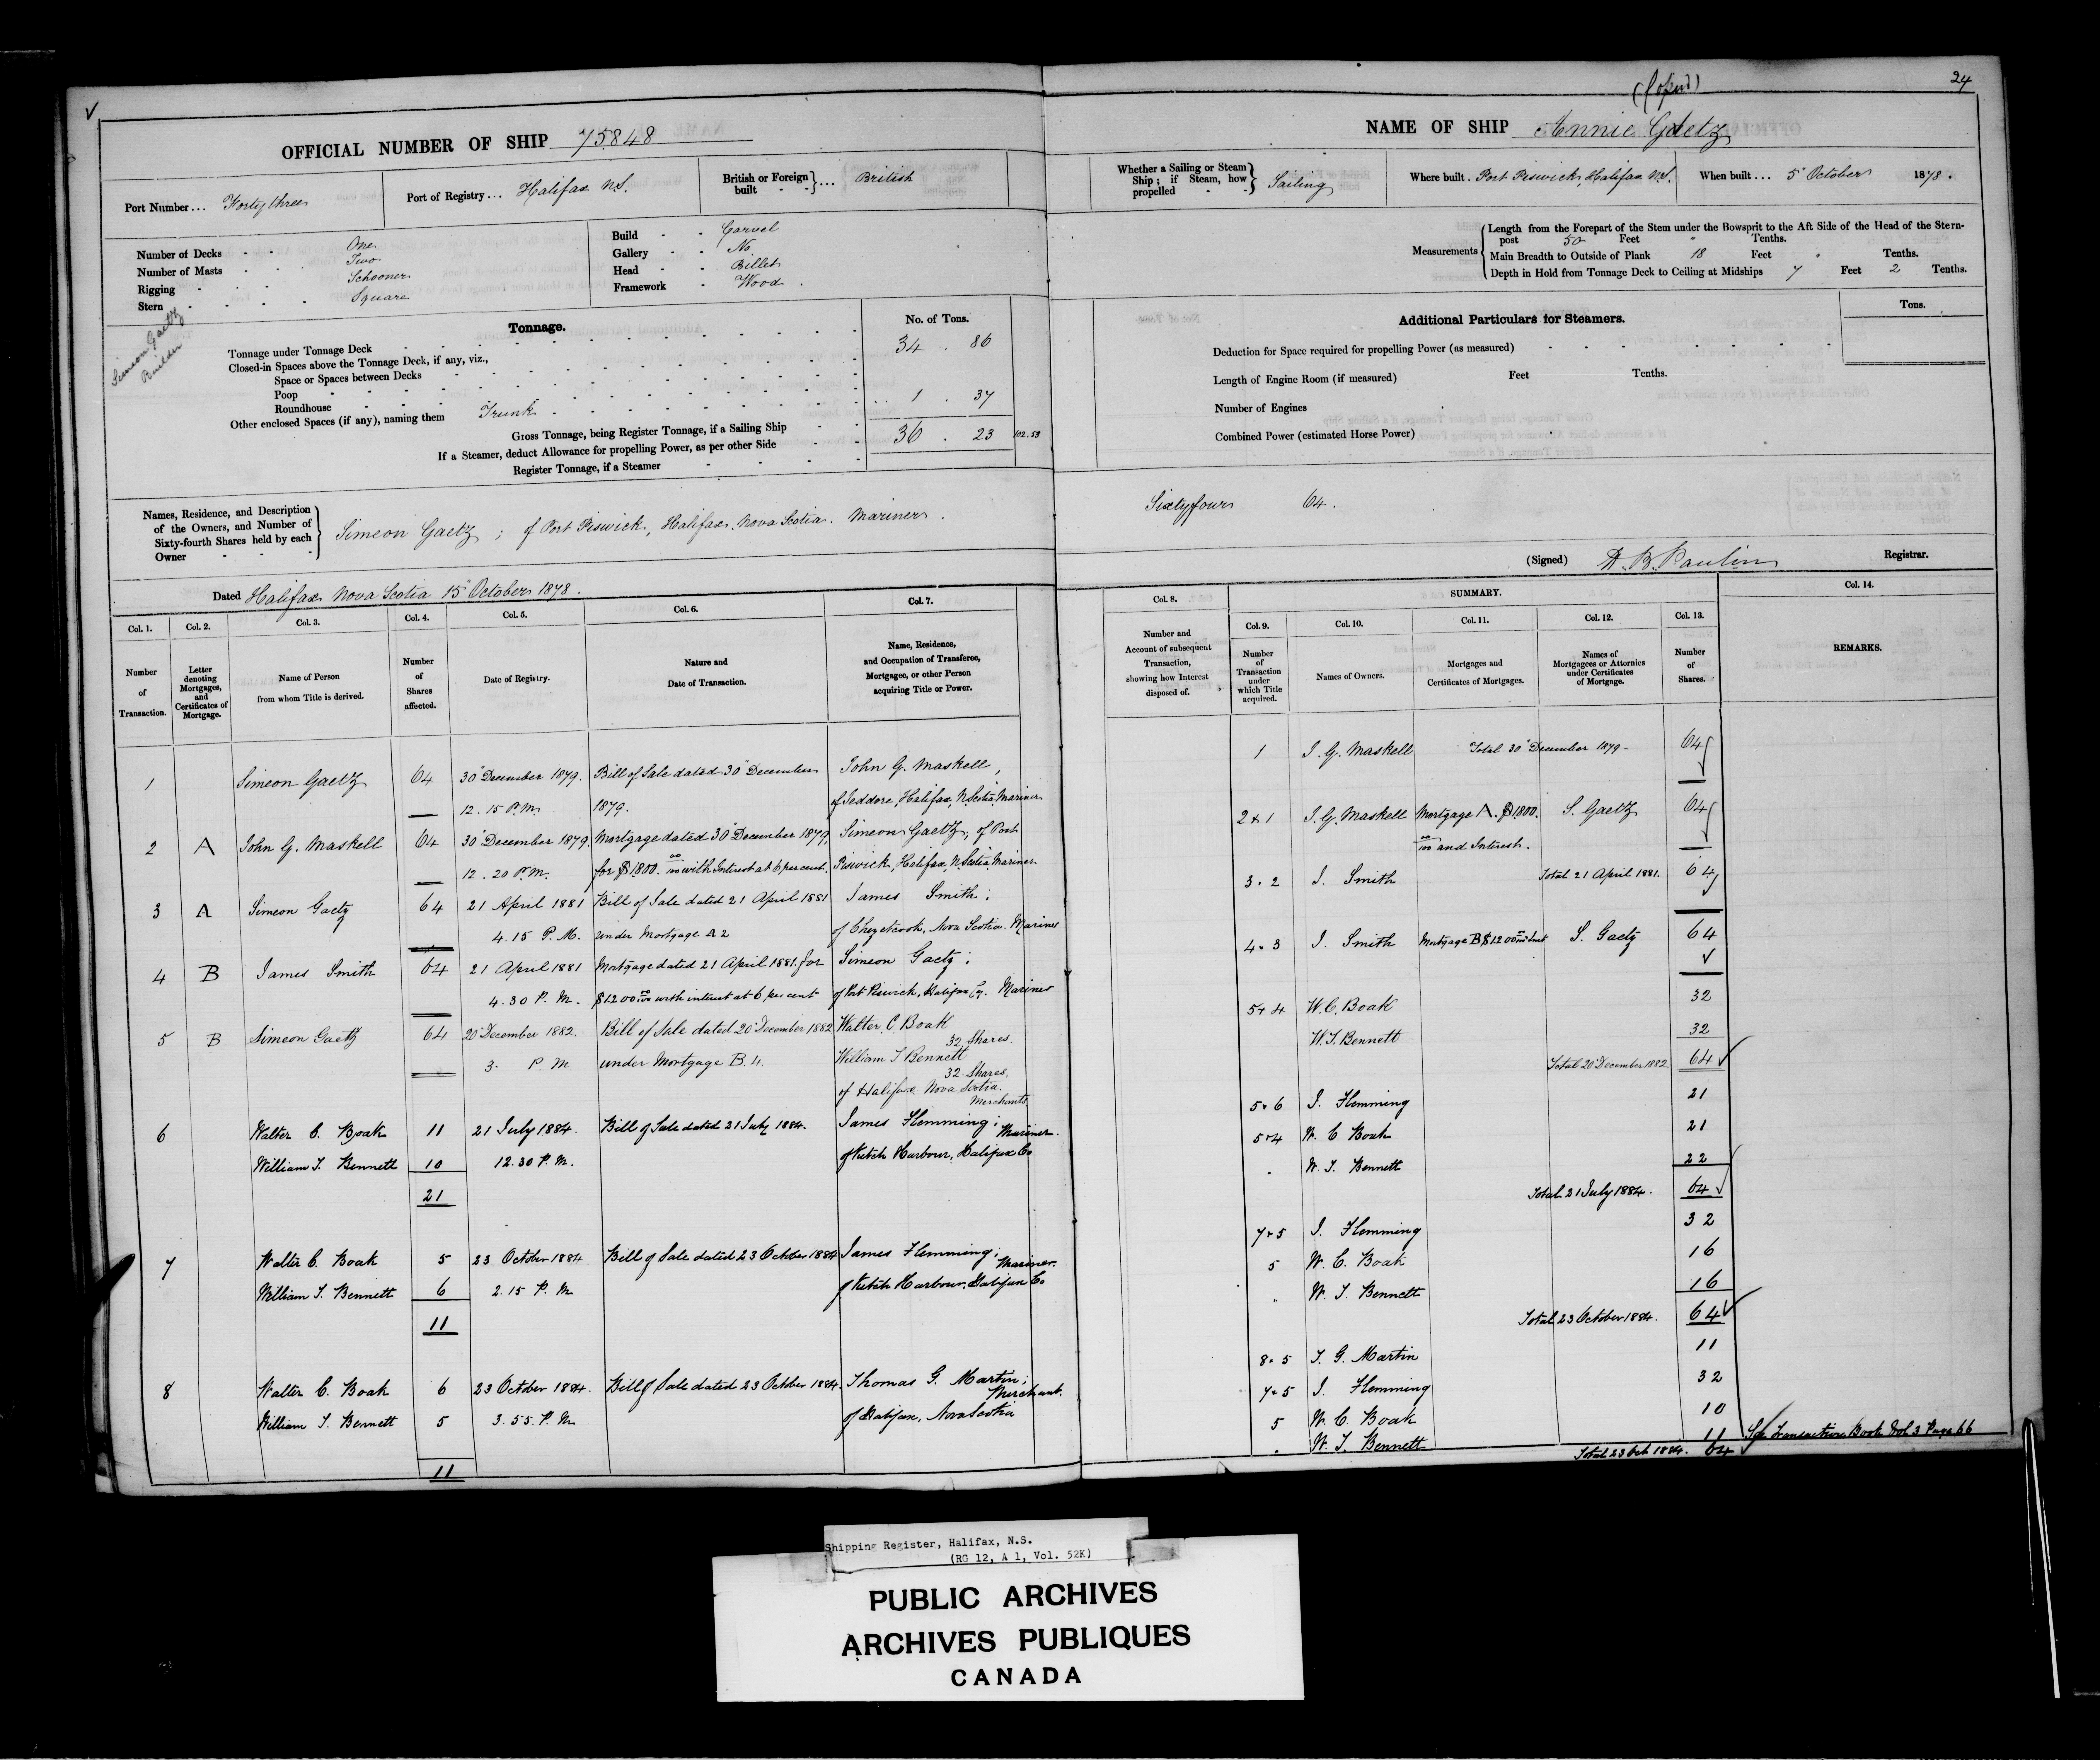 OFFICIAL NUMBER OF SHIP 75848
Port Number ... Forty three
Port of Registry ... Halifax N.S.
British or Foreign built ... British
Number of Decks One
Number of Masts Two
Rigging Schooner
Stern Square
Build Carvel
Gallery No
Head Billet
Framework Wood
Simeon Gaetz
Builder
Tonnage.
No. of Tons.
Tonnage under Tonnage Deck 34 . 86
Closed-in Spaces above the Tonnage Deck, if any, viz.,
Space or Spaces between Decks
Poop
Roundhouse
Other enclosed Spaces (if any), naming them Trunk 1 . 37
Gross Tonnage, being Register Tonnage, if a Sailing Ship 36 . 23 102.53
If a Steamer, deduct Allowance for propelling Power, as per other Side
Register Tonnage, if a Steamer
Names, Residence, and Description
of the Owners, and Number of
Sixty-fourth Shares held by each
Owner
Simeon Gaetz ; of Port Piswick, Halifax, Nova Scotia. Mariner.
Dated Halifax Nova Scotia 15 October 1878.
Col. 1. Col. 2. Col. 3. Col. 4. Col. 5. Col. 6. Col. 7.
Number of Transaction.
Letter denoting Mortgages, and Certificates of Mortgage.
Name of Person from whom Title is derived.
Number of Shares affected.
Date of Registry.
Nature and Date of Transaction.
Name, Residence, and Occupation of Transferee, Mortgagee, or other Person acquiring Title or Power.
1 Simeon Gaetz 64 30 December 1879. Bill of Sale dated 30 December John G. Maskell,
12.15 P.M. 1879. of Jeddore, Halifax, N. Scotia Mariner
2 A John G. Maskell 64 30 December 1879. Mortgage dated 30 December 1879, Simeon Gaetz, of Port
12.20 P.M. for $1800. 00/100 with Interest at 6 per cent. Piswick, Halifax, N. Scotia Mariner
3 A Simeon Gaetz 64 21 April 1881 Bill of Sale dated 21 April 1881 James Smith;
4.15 P.M. under Mortgage A 2 of Chezetcook, Nova Scotia. Mariner
4 B James Smith 64 21 April 1881 Mortgage dated 21 April 1881. for Simeon Gaetz;
4.30 P.M. $1200 00/100 with interest at 6 per cent of Port Piswick, Halifax Co. Mariner
5 B Simeon Gaetz 64 20 December 1882. Bill of Sale dated 20 December 1882 Walter C. Boak
32 Shares.
3. P.M. under Mortgage B. 4. William T Bennett
32 Shares.
of Halifax Nova Scotia.
Merchants
6 Walter C. Boak 11 21 July 1884. Bill of Sale dated 21 July 1884. James Flemming; Mariner.
William T. Bennett 10 12.30 P.M. of Ketch Harbour, Halifax Co
21
7 Walter C. Boak 5 23 October 1884 Bill of Sale dated 23 October 1884 James Flemming; Mariner.
William T. Bennett 6 2.15 P.M. of Ketch Harbour, Halifax Co
11
8 Walter C. Boak 6 23 October 1884. Bill of Sale dated 23 October 1884. Thomas G. Martin; Merchant.
William T. Bennett 5 3.55 P.M. of Halifax, Nova Scotia
11
24
NAME OF SHIP Annie Gaetz
Whether a Sailing or Steam Ship; if Steam, how propelled Sailing
Where built . Port Piswick, Halifax N.S.
When built ... 5 October 1878.
Measurements
Length from the Forepart of the Stem under the Bowsprit to the Aft Side of the Head of the Stern-
post 50 Feet " Tenths.
Main Breadth to Outside of Plank 18 Feet " Tenths.
Depth in Hold from Tonnage Deck to Ceiling at Midships 7 Feet 2 Tenths.
Additional Particulars for Steamers.
Tons.
Deduction for Space required for propelling Power (as measured)
Length of Engine Room (if measured) Feet Tenths.
Number of Engines
Combined Power (estimated Horse Power)
Sixty four 64.
(Signed) D. B. Paulin Registrar.
Col. 8. SUMMARY. Col. 14.
Col. 9. Col. 10. Col. 11. Col. 12. Col. 13.
Number and Account of subsequent Transaction, showing how Interest disposed of.
Number of Transaction under which Title acquired.
Names of Owners.
Mortgages and Certificates of Mortgages.
Names of Mortgagees or Attornies under Certificates of Mortgage.
Number of Shares.
REMARKS.
1 J. G. Maskell Total 30 December 1879 - 64
2 & 1 J. G. Maskell Mortgage A. $1800. S. Gaetz 64
00/100 and Interest.
3 . 2 J. Smith Total 21 April 1881. 64
4 . 3 J. Smith Mortgage B $1200 00/100 & Int S. Gaetz 64
5 & 4 W. C. Boak 32
W. T. Bennett 32
Total 20 December 1882 64
5 & 6 J. Flemming 21
5 & 4 W. C Boak 21
. W. T. Bennett 22
Total 21 July 1884. 64
7 & 5 J. Flemming 32
5 W. C. Boak 16
" W. T. Bennett 16
Total 23 October 1884. 64
8 . 5 T. G. Martin 11
7 & 5 J. Flemming 32
5 W. C. Boak 10
. W. T. Bennett 11 See Transaction Book Vol 3 Page 66
Total 23 Oct 1884. 64
Shipping Register, Halifax, N.S.
(RG 12, A 1, Vol. 52K)
PUBLIC ARCHIVES
ARCHIVES PUBLIQUES
CANADA